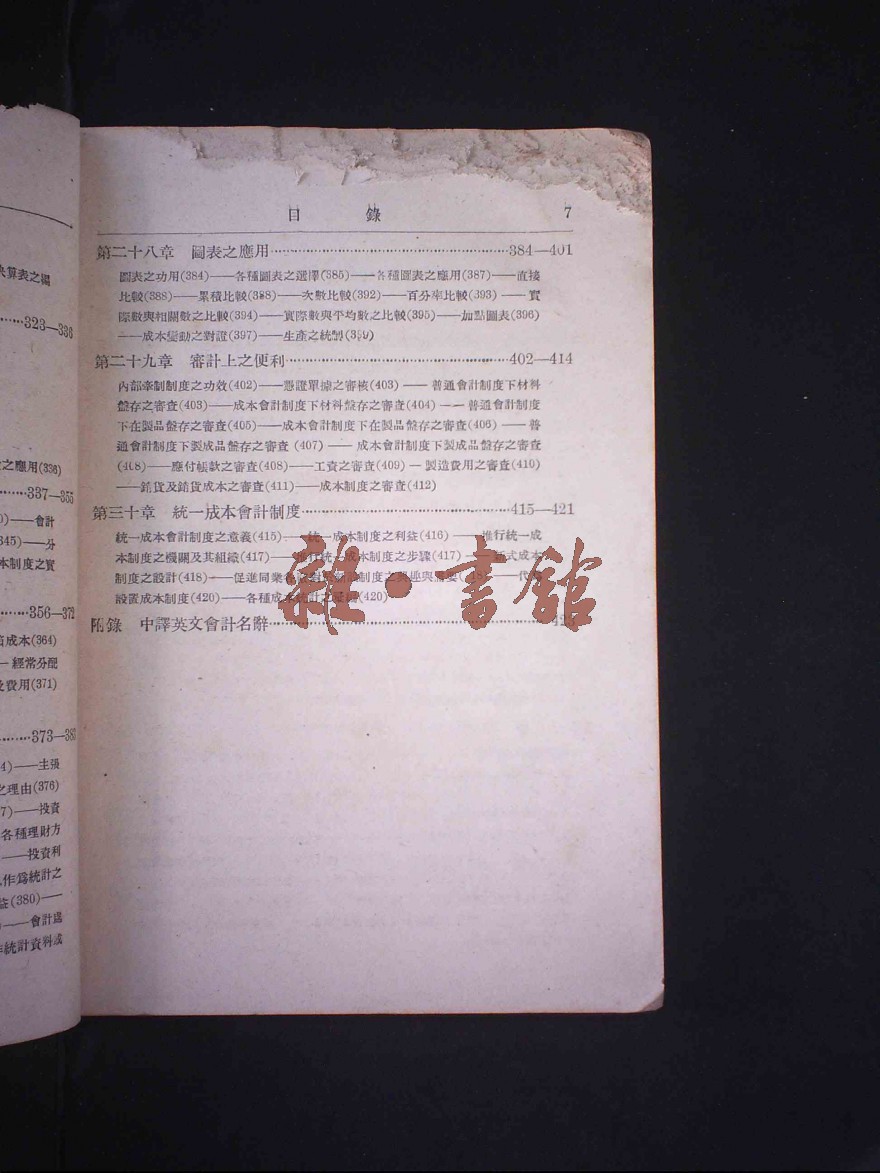 央算表之編
323—336
之應用(336)
337—355
0)——會計
345)——分
本制度之實
356—372
省成本(364)
—經常分配
及費用(371)
373—383
4)——主張
之理由(376)
7)——投資
各種理財方
——投資利
作爲統計之
益(380)——
——會計處
作統計資料或
目 錄 7
第二十八章 圖表之應用 384—401
圖表之功用(384)——各種圖表之選擇(385)——各種圖表之應用(387)——直接
比較(388)——累積比較(388)——次數比較(392)——百分率比較(393)——實
際數與相關數之比較(394)——實際數與平均數之比較(395)——加點圖表(396)
——成本變動之對證(397)——生產之統制(399)
第二十九章 審計上之便利 402—414
內部牽制制度之功效(402)——憑證單據之審核(403)——普通會計制度下材料
盤存之審查(403)——成本會計制度下材料盤存之審查(404)——普通會計制度
下在製品盤存之審查(405)——成本會計制度下在製品盤存之審查(406)——普
通會計制度下製成品盤存之審查(407)——成本會計制度下製成品盤存之審查
(408)——應付帳款之審查(408)——工資之審查(409)—製造費用之審查(410)
——銷貨及銷貨成本之審查(411)——成本制度之審查(412)
第三十章 統一成本會計制度 415—421
統一成本會計制度之意義(415)——統一成本制度之利益(416)——推行統一成
本制度之機關及其組織(417)——推行統一成本制度之步驟(417)——新式成本
制度之設計(418)——促進同業 對 制度之興趣與需要 ——代
設置成本制度(420)——各種成本統計之 (420)
附錄 中譯英文會計名辭
雜·書館